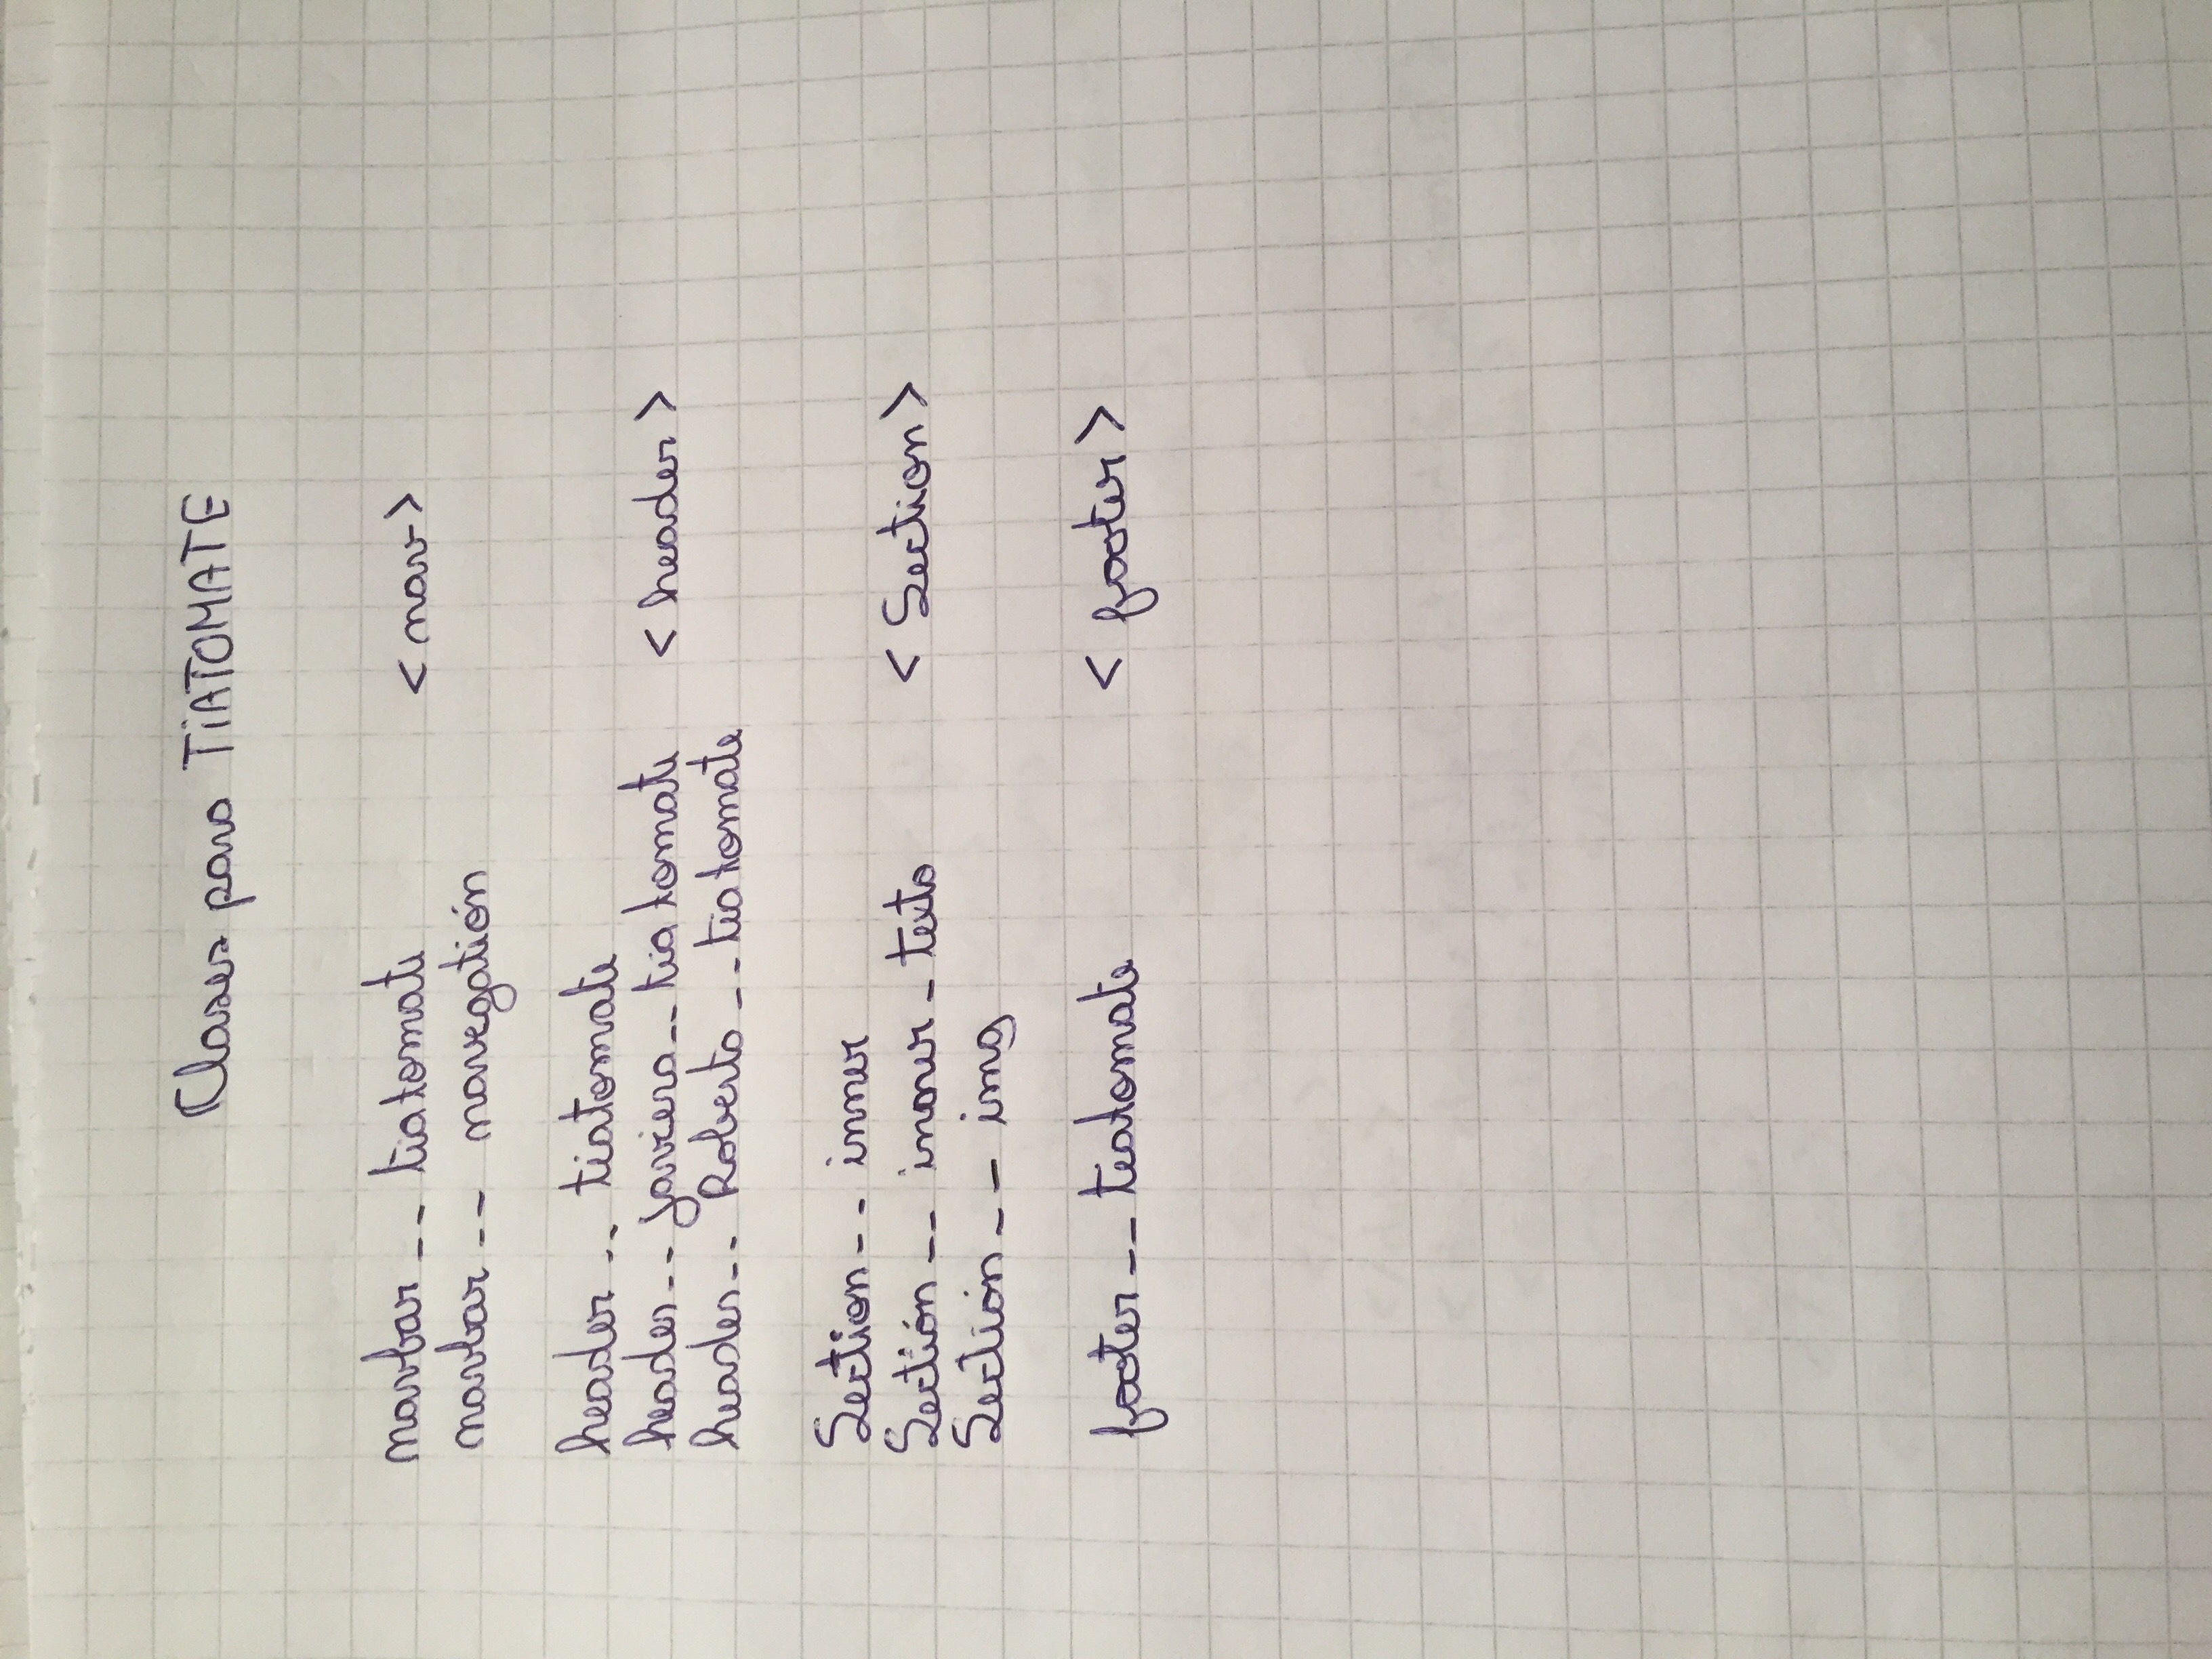 Clases para TiATOMATE
navbar -- tiatomate <nav>
navbar -- navegatión
header -- tiatomate
header -- javiera -- tiatomate <header>
header -- Roberto -- tiatomate
Section -- inner
Section -- inner - texto <Section>
Section -- img
footer -- tiatomate <footer>